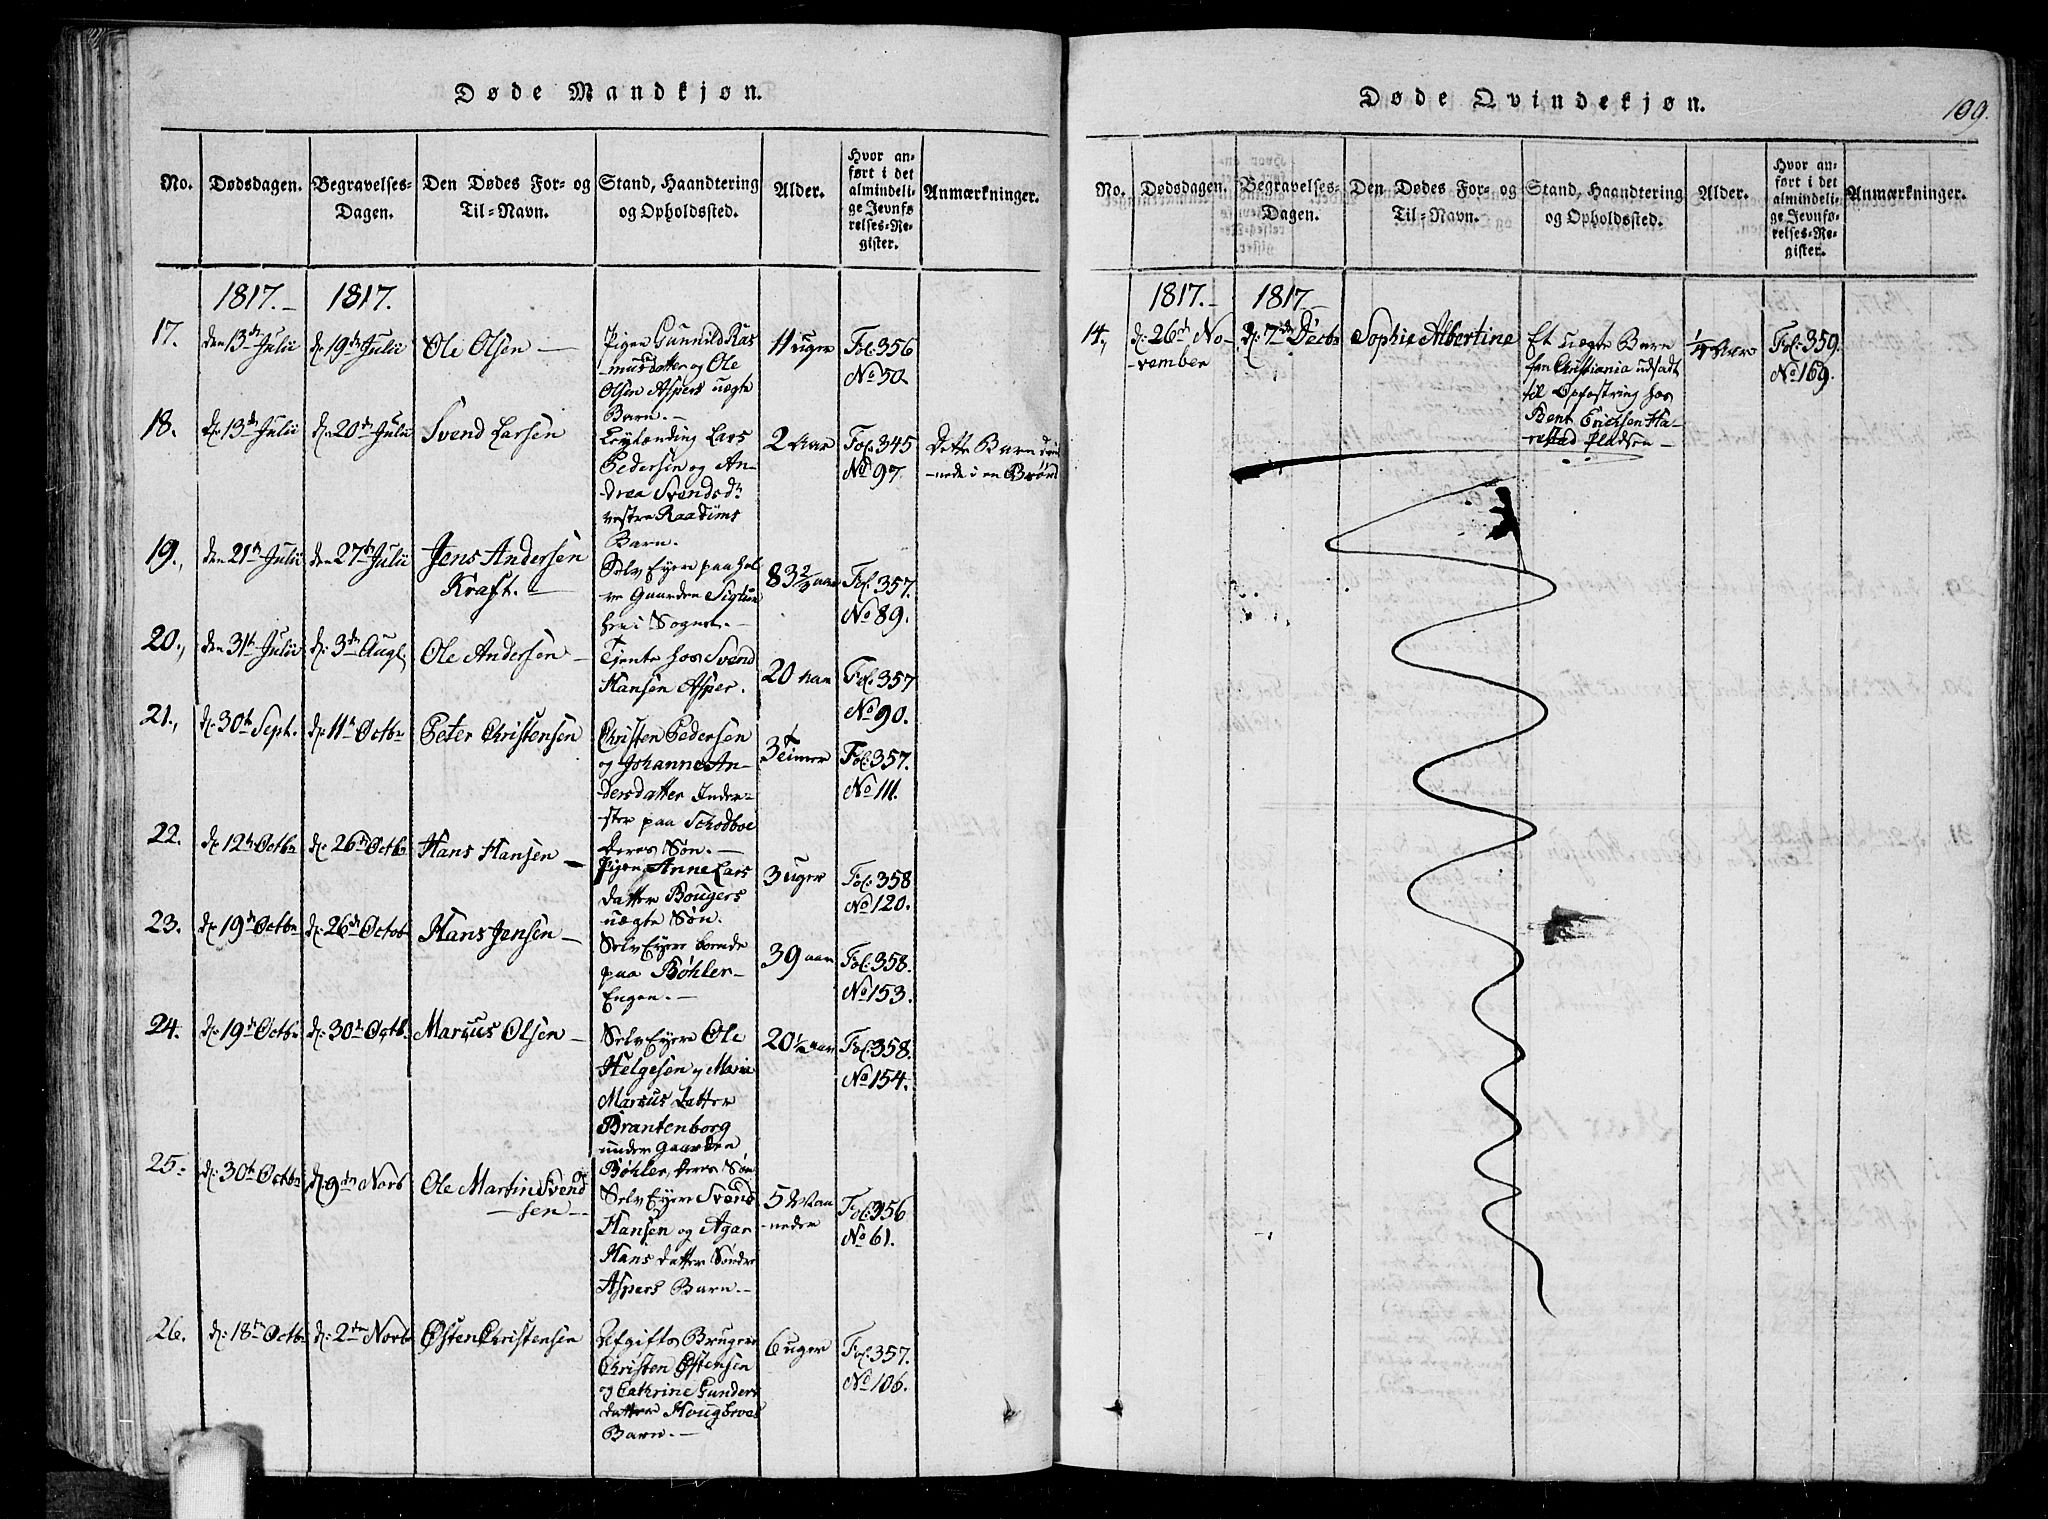 Døde Mandkjøn.
No.
Dødsdagen.
Begravelses-
Dagen.
Den Dødes For- og
Til-Navn.
Stand, Haandtering
og Opholdssted.
Alder.
Hvor an-
ført i det
almindeli-
ge Jevnfø-
relses-Re-
gister.
Anmærkninger.
1817.-
1817.
17.
den 13de Julii
d: 19de Julii
Ole Olsen —
Pigen Gunnild Ras
musdatter og Ole
Olsen Aspers uægte
Barn. —
11 uger
Fol: 356
No 50.
18.
d: 13de Julii
d: 20de Julii
Svend Larsen
Leylænding Lars
Pedersen og An-
drea Svendsdr
vestre Raadims
Barn.
2 Aar
Fol: 345
No 97.
Dette Barn drug
nede i en Brønd
19.,
den 21de Julii
den 27de Julii
Jens Andersen
Kraft. —
Selv Eyere paa hal
ve Gaarden
i Sognet. —
83 2/3 aar
Fol: 357.
No 89.
20.,
den 31te Julii
d: 3de Augt
Ole Andersen —
Tjente hos Svend
Hansen Asper.
20 Aar
Fol: 357
No 90.
21.,
d: 30te Sept.
d: 11te Octbr
Peter Christensen
Christen Pedersen
og Johanne An-
dersdatter Inder-
ster paa Schodboe
Deres Søn. —
3 Timer
Fol: 357.
No 111.
22.
d: 12te Octbr
d: 26de Octbr
Hans Hansen —
Pigen Anne Lars
datter Bougers
uægte Søn.
3 uger
Fol: 358
No 120.
23.
d: 19de Octbr
d: 26de Octob
Hans Jensen —
Selv Eyere boende
paa Bøhler-
Engen. —
39 aar
Fol: 358.
No 153.
24.
d: 19de Octbr
d: 30te Octb.
Marcus Olsen —
Selv Eyere Ole
Helgesen og Maria
Marcus datter
Brantenborg
under Gaarden
Bøhler, Deres Søn
20 1/2 aar
Fol: 358.
No 154.
25.
d: 30te Octbr
d: 9de Novb
Ole Martin Svend
— sen —
Selv Eyere Svend
Hansen og Agar
Hans datter Søndre
Aspers Barn. —
5 Maa
neder
Fol: 356
No 61.
26.
d: 18de Octbr
d: 2den Novb
Østen Christensen
Afgifts Bruger
Christen Østensen
og Cathrine Gunders
datter
Barn. —
6 uger
Fol: 357.
No 106.
Døde Qvindekjøn.
199.
No.
Dødsdagen.
Begravelses-
Dagen.
Den Dødes For- og
Til-Navn.
Stand, Haandtering
og Opholdssted.
Alder.
Hvor an-
ført i det
almindeli-
ge Jevnfø-
relses-Re-
gister.
Anmærkninger.
1817.-
1817-
14.,
d: 26de No-
vember
d: 7de Decbr
Sophie Albertine
Et uægte Barn
fra Christiania udsadt
til Opfostring hos
Bent Erichsen Ha-
restad pladsen —
1/4 Aar
Fol: 359.
No 169.